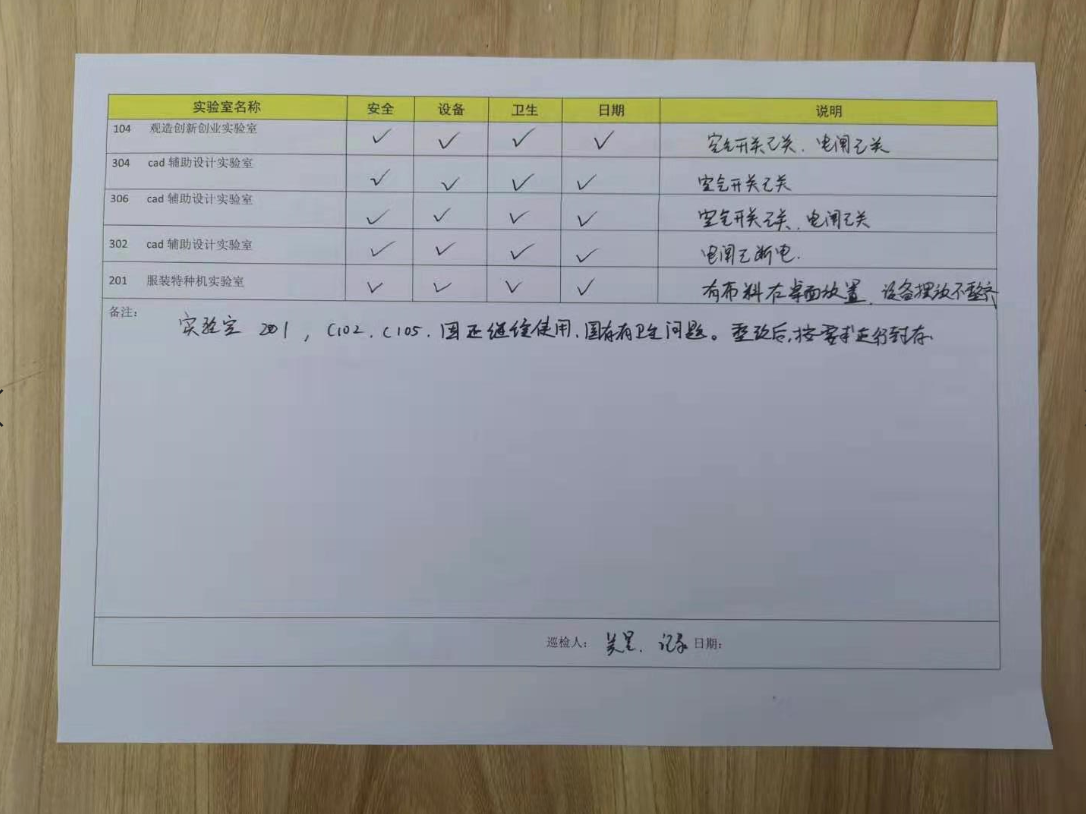 实验室名称 安全 设备 卫生 日期 说明
104 观造创新创业实验室 ✓ ✓ ✓ ✓ 空气开关已关、电闸已关
304 cad 辅助设计实验室 ✓ ✓ ✓ ✓ 空气开关已关
306 cad 辅助设计实验室 ✓ ✓ ✓ ✓ 空气开关已关、电闸已关
302 cad 辅助设计实验室 ✓ ✓ ✓ ✓ 电闸已断电.
201 服装特种机实验室 ✓ ✓ ✓ ✓ 有布料在桌面放置、设备摆放不整齐
备注:
实验室 201, C102、C105、因正继续使用、因存有卫生问题。整改后,按要求进行封存
巡检人: 日期: